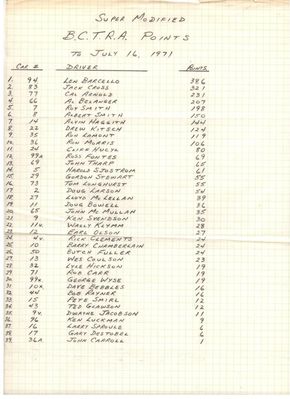 SUPER MODIFIED
B.C.T.R.A. POINTS
TO JULY 16, 1971
CAR # DRIVER POINTS
1. 94 LEN BARCELLO 386
2. 83 JACK CROSS 321
3. 77 CAL ARNOLD 231
4. 66 AL BELANGER 207
5. 7 ROY SMITH 198
6. 8 ROBERT SMITH 150
7. 14 ALVIN HAGGITH 144
8. 22 DREW KITSCH 124
9. 35 RON LAMONT 119
10. 36 RON MORRIS 106
11. 24 CLIFF HUCUL 80
12. 99A ROSS FONTES 69
13. 69 JOHN THARP 65
14. 5 HAROLD SJOSTROM 61
15. 29 GORDON STEWART 55
16. 73 TOM LONGHURST 55
17. 2 DOUG LARSON 54
18. 27 LLOYD MCLELLAN 39
19. 11 DOUG BOWELL 36
20. 65 JOHN MCMULLAN 35
21. 9 KEN SVENDSON 30
22. 11X WALLY KLYMM 28
23. 12 EARL OLSON 27
24. 4X RICK CLEMENTS 24
25. 10 BARRY CHAMBERLAIN 24
26. 50 BUTCH FULLER 24
27. 13 WES COULSON 23
28. 32 LYLE HICKSON 19
29. 71 ROB CARR 19
30. 99X GEORGE WYSE 19
31. 10X DAVE BEBBLES 16
32. 44 BOB RAYNER 16
33. 15 PETE SMIRL 12
34. 43 TED GLAWSON 12
35. 9X DWAYNE JACOBSON 11
36. 96 KEN LUCKMAN 9
37. 16 LARRY SPROULE 6
38. 17 GARY DESTOBEL 6
39. 36A JOHN CARROLL 1